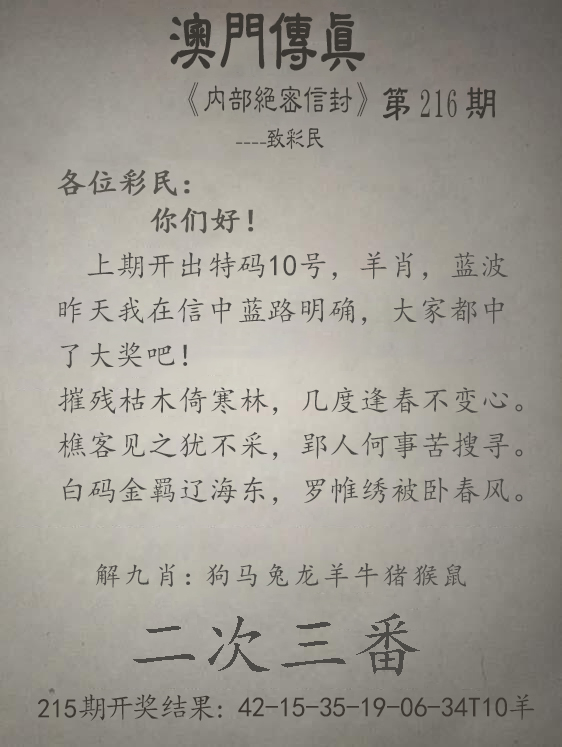 澳門傳真
《内部絕密信封》第216期
----致彩民
各位彩民：
你们好！
上期开出特码10号，羊肖，蓝波
昨天我在信中蓝路明确，大家都中
了大奖吧！
摧残枯木倚寒林，几度逢春不变心。
樵客见之犹不采，郢人何事苦搜寻。
白码金羁辽海东，罗帷绣被卧春风。
解九肖：狗马兔龙羊牛猪猴鼠
二次三番
215期开奖结果：42-15-35-19-06-34T10羊